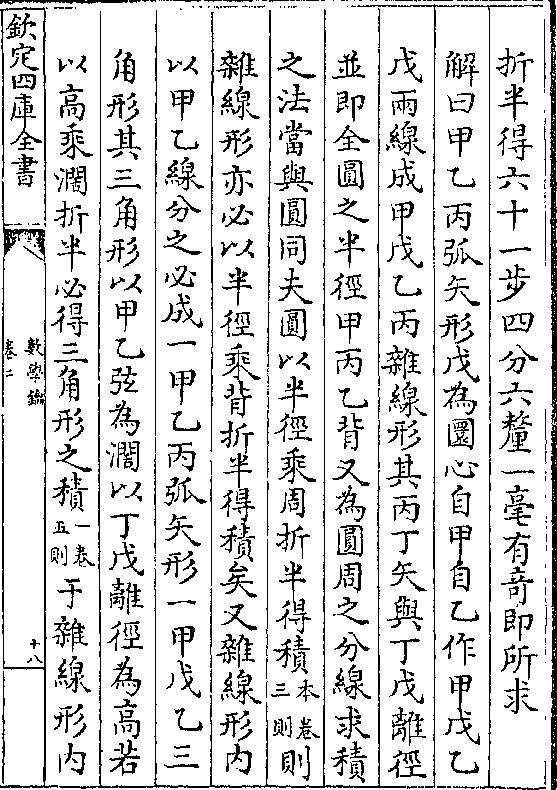 折半得六十一步四分六釐一毫有竒即所求
解曰甲乙丙弧矢形戊為圜心自甲自乙作甲戊乙
戊兩線成甲戊乙丙雜線形其丙丁矢與丁戊離徑
並即全圓之半徑甲丙乙背又為圓周之分線求積
之法當與圓同夫圓以半徑乘周折半得積本卷三則則
雜線形亦必以半徑乘背折半得積矣又雜線形内
以甲乙線分之必成一甲乙丙弧矢形一甲戊乙三
角形其三角形以甲乙弦為濶以丁戊離徑為高若
以高乘濶折半必得三角形之積一卷五則于雜線形内
欽定四庫全書
數學鑰
卷二
十八